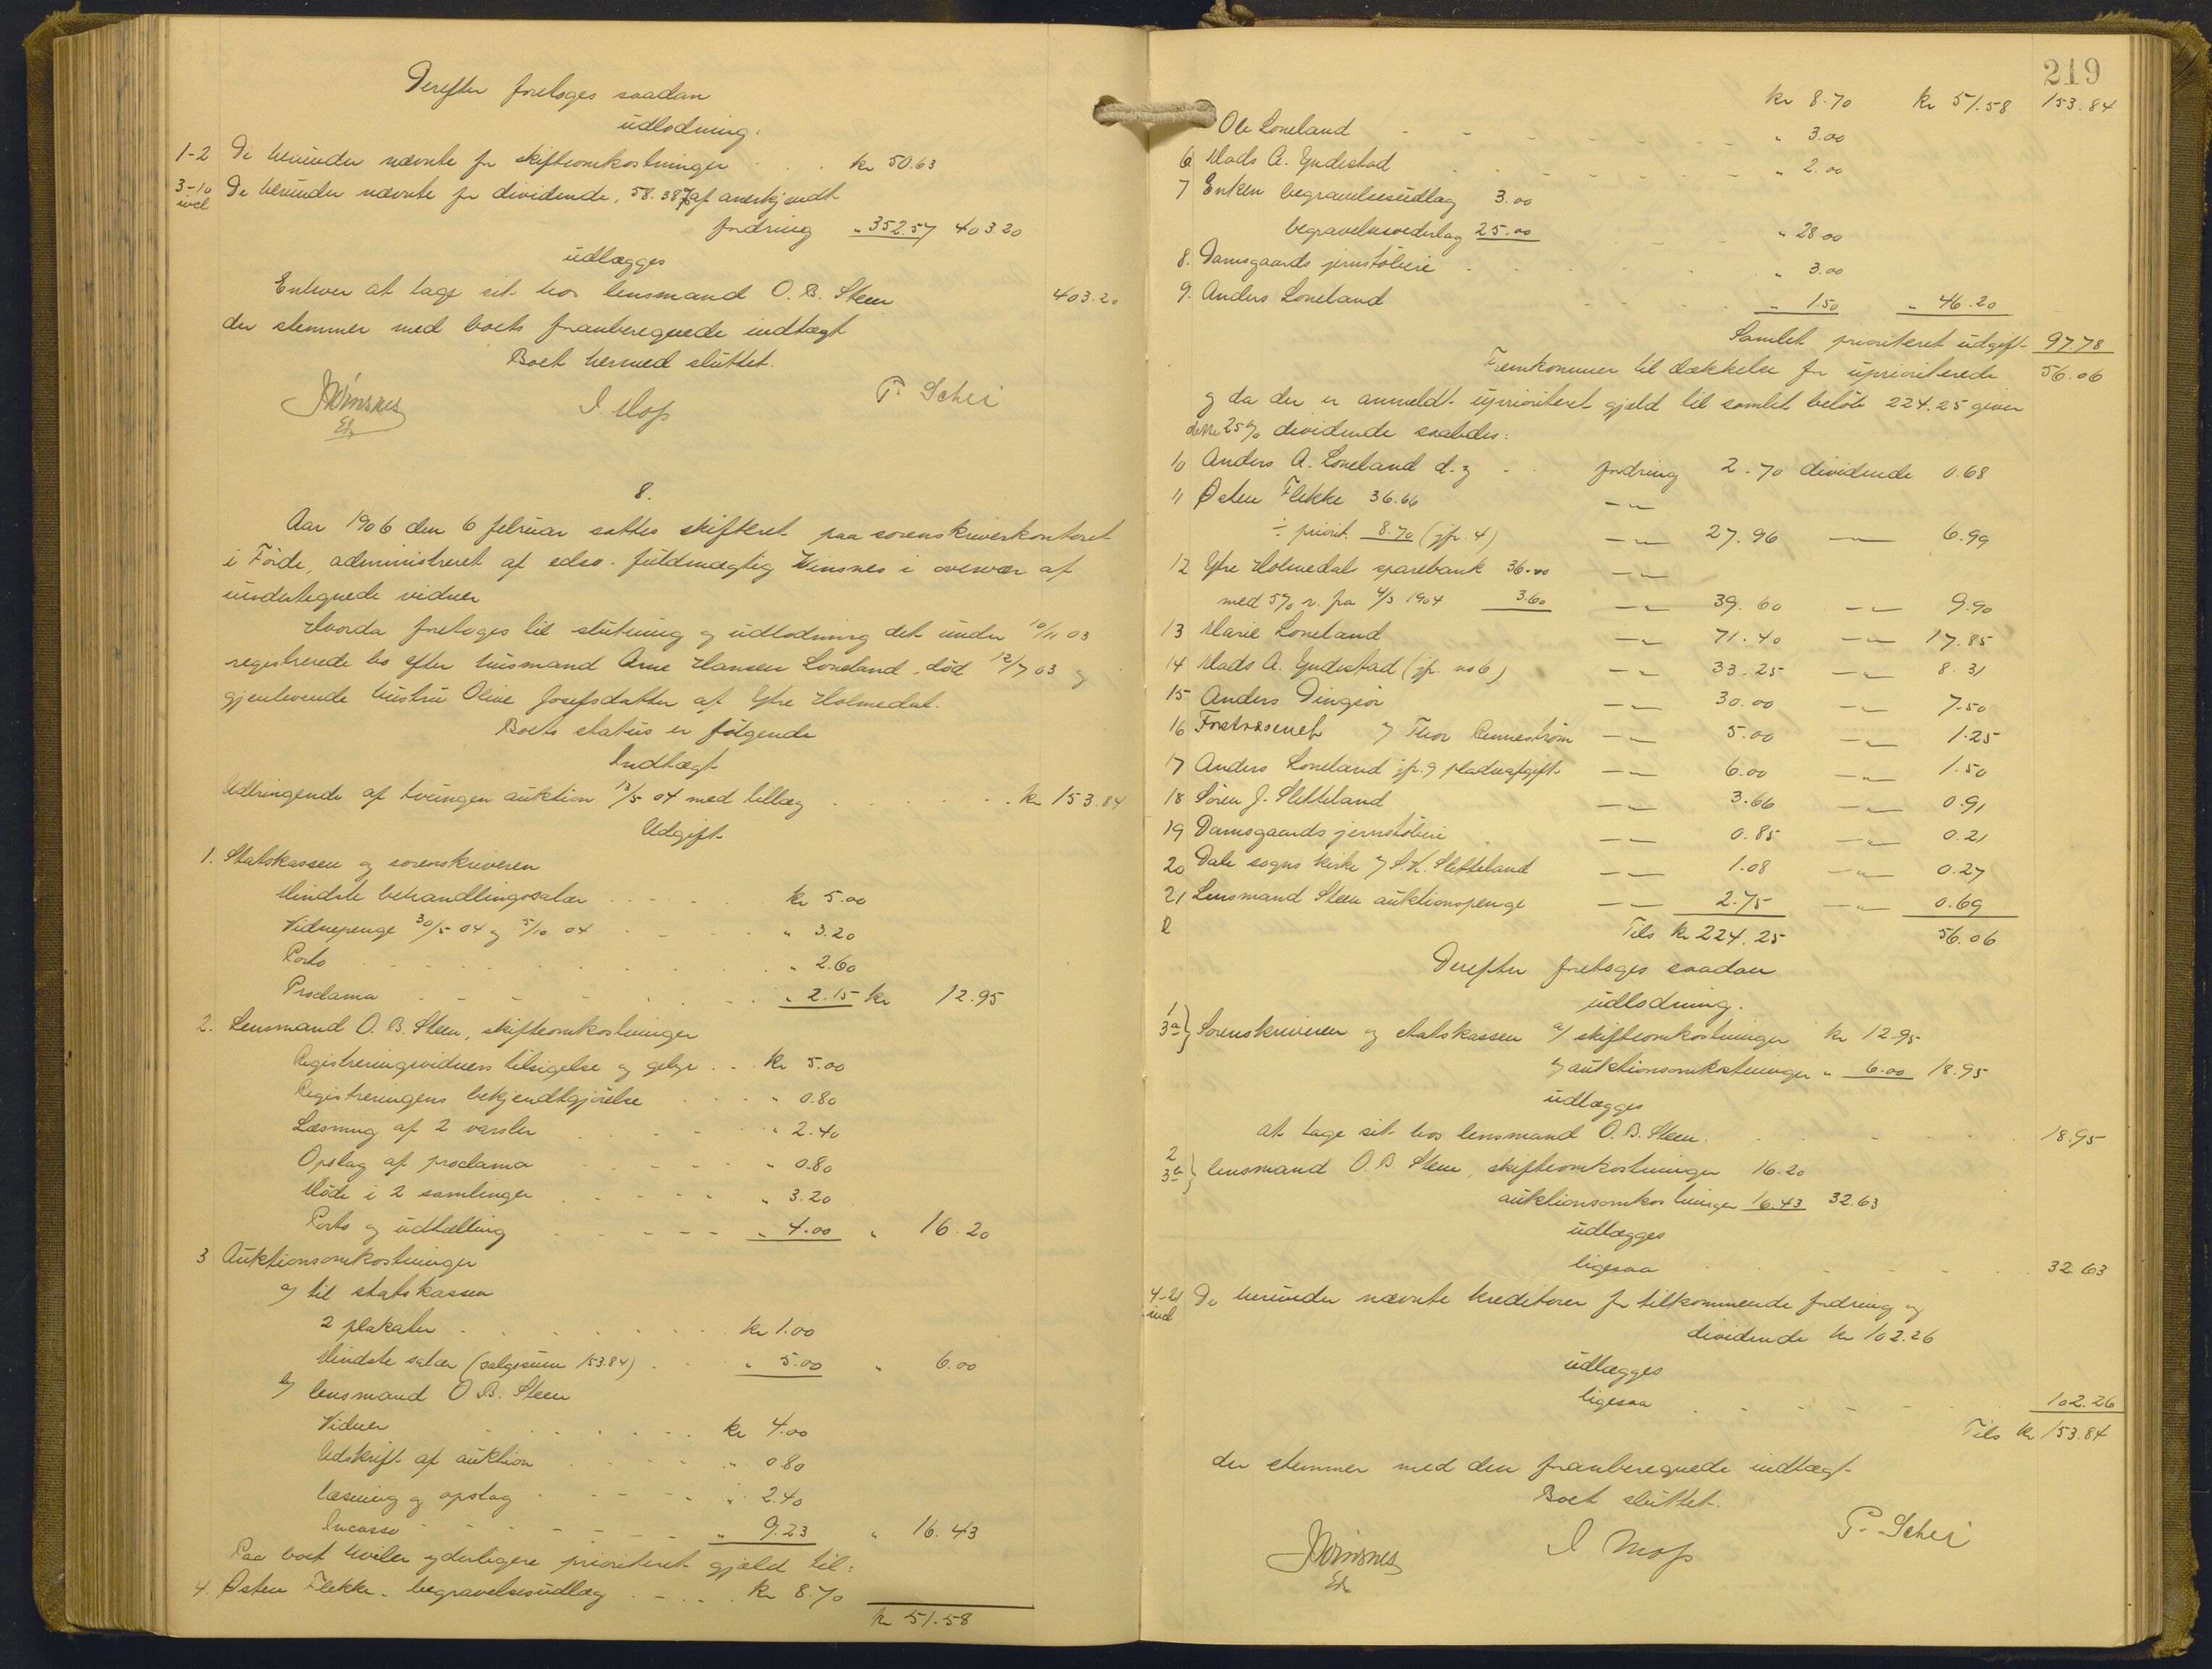 Derefter foretoges saadan
udlodning:
1-2 De herunder nævnte for skifteomkostninger kr 50.63
3-10 incl De herunder nævnte for dividende, 58.38% af anerkjendt
fordring " 352.57 403.20
udlægges
Enhver at tage sit hos lensmand O. B. Steen 403.20
der stemmer med boets foranberegnede indtægt
Boet hermed sluttet.
JWinsnes I Moss P. Schei
Ed.
8.
Aar 1906 den 6 februar sattes skifteret paa sorenskriverkontoret
i Förde, administreret af edsv. fuldmægtig Winsnes i overvær af
undertegnede vidner
Hvorda foretoges til slutning og udlodning det under 10/11 03
registrerede bo efter husmand Arne Hansen Loneland, död 12/7 03 og
gjenlevende hustru Oline Josefsdatter af Ytre Holmedal.
Boets status er følgende
Indtægt
Udbringende af tvungen auktion 13/5 04 med tillæg kr 153.84
Udgift
1. Statskassen og sorenskriveren
Mindste behandlingssalær kr 5.00
Vidnepenge 30/5 04 og 5/10 04 " 3.20
Porto " 2.60
Proclama " 2.15 kr 12.95
2. Lensmand O. B. Steen, skifteomkostninger
Registreringsvidners tilsigelse og gebyr kr 5.00
Registreringens bekjendtgjörelse " 0.80
Læsning af 2 varsler " 2.40
Opslag af proclama " 0.80
Möde i 2 samlinger " 3.20
Porto og udtælling " 4.00 " 16.20
3 Auktionsomkostninger
a) til statskassen
2 plakater kr 1.00
Mindste salær (salgssum 153.84) " 5.00 " 6.00
b) lensmand O. B. Steen
Vidner kr 4.00
Udskrift af auktion " 0.80
Læsning og opslag " 2.40
Incasso " 9.23 " 16.43
Paa boet hviler yderligere prioriteret gjæld til:
4. Østen Flekke - begravelsesudlæg kr 8.70
kr 51.58
219
kr 8.70 kr 51.58 153.84
Ole Loneland " 3.00
6 Mads A. Yndestad " 2.00
7 Enken begravelsesudlæg 3.00
begravelsesvederlag 25.00 " 28.00
8. Damsgaards jernstöberi " 3.00
9. Anders Loneland " 1.50 " 46.20
Samlet prioriteret udgift 97.78
Fremkommer til dækkelse for uprioriterede 56.06
og da der er anmeldt uprioriteret gjæld til samlet belöb 224.25 giver
dette 25% dividende saaledes:
10 Anders A. Loneland d.y. fordring 2.70 dividende 0.68
11 Østen Flekke 36.66 —"—
÷ priorit. 8.70 (jfr. 4) —"— 27.96 —"— 6.99
12 Ytre Holmedals sparebank 36.00 —"—
med 5% r. fra 4/3 1904 3.60 —"— 39.60 —"— 9.90
13 Marie Loneland —"— 71.40 —"— 17.85
14 Mads A. Yndestad (jfr. no 6) —"— 33.25 —"— 8.31
15 Anders Dingsör —"— 30.00 —"— 7.50
16 Forstvæsenet v/ Thor —"— 5.00 —"— 1.25
17 Anders Loneland jfr. 9 pladseafgift —"— 6.00 —"— 1.50
18 Sören J. Sletteland —"— 3.66 —"— 0.91
19 Damsgaards jernstöberi —"— 0.85 —"— 0.21
20 Dale sogns kirke v/ S. K. Sletteland —"— 1.08 —"— 0.27
21 Lensmand Steen auktionspenge —"— 2.75 —"— 0.69
Tils kr 224.25 56.06
Derefter foretoges saadan
udlodning.
1 3a } Sorenskriveren og statskassen a/ skifteomkostninger kr 12.95
b/ auktionsomkostninger " 6.00 18.95
udlægges
at tage sit hos lensmand O. B. Steen 18.95
2 3b } lensmand O. B. Steen, skifteomkostninger 16.20
auktionsomkostninger 16.43 32.63
udlægges
ligesaa 32.63
4-21 incl De herunder nævnte kreditorer for tilkommende fordring og
dividende kr 102.26
udlægges
ligesaa 102.26
Tils kr 153.84
der stemmer med den foranberegnede indtægt
Boet sluttet.
JWinsnes I Moss P. Schei
Ed.